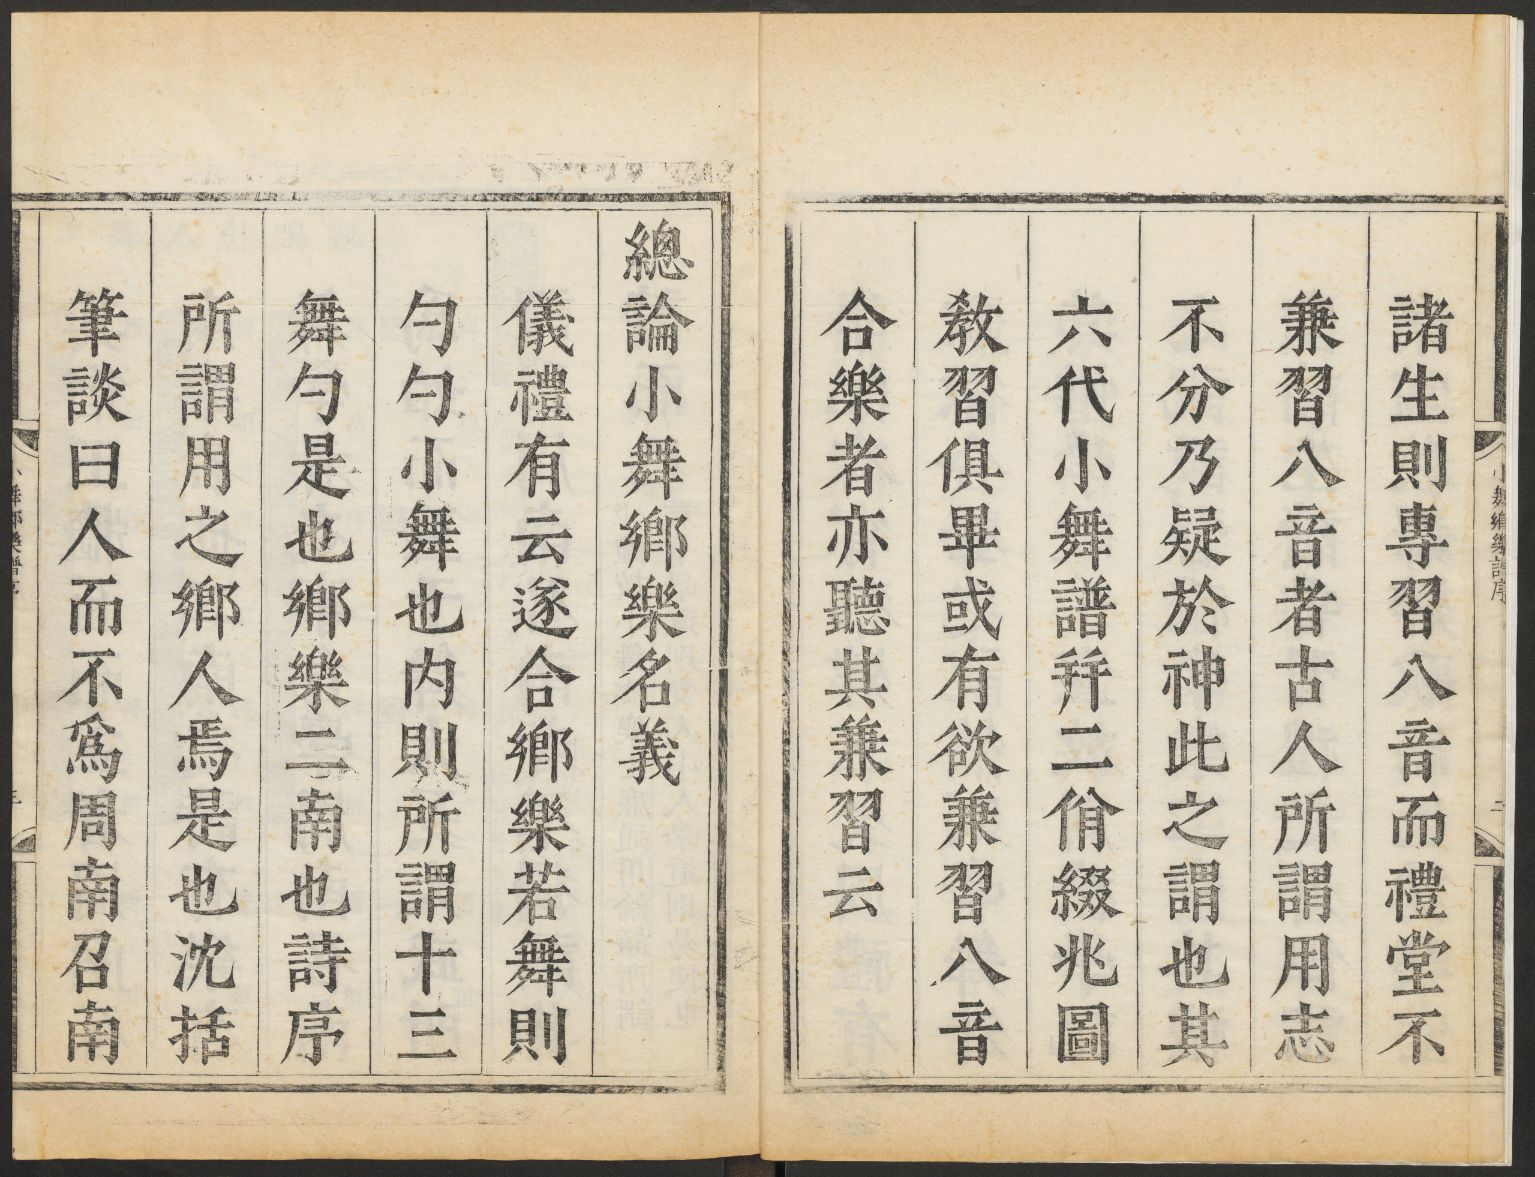 諸生則專習八音而禮堂不
兼習八音者古人所謂用志
不分乃疑於神此之謂也其
六代小舞譜幷二佾綴兆圖
敎習俱畢或有欲兼習八音
合樂者亦聽其兼習云
小舞鄉樂譜序
二
總論小舞鄉樂名義
儀禮有云遂合鄉樂若舞則
勺勺小舞也內則所謂十三
舞勺是也鄉樂二南也詩序
所謂用之鄉人焉是也沈括
筆談曰人而不爲周南召南
小舞鄉樂譜序
三